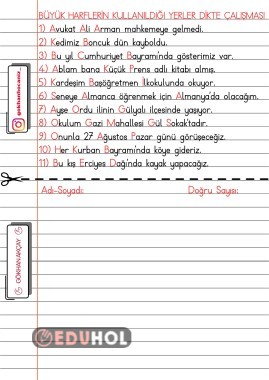 BÜYÜK HARFLERİN KULLANILDIĞI YERLER DİKTE ÇALIŞMASI
1) Avukat Ali Arman mahkemeye gelmedi.
2) Kedimiz Boncuk dün kayboldu.
3) Bu yıl Cumhuriyet Bayramı'nda gösterimiz var.
4) Ablam bana Küçük Prens adlı kitabı almış.
5) Kardeşim Başöğretmen İlkokulunda okuyor.
6) Seneye Almanca öğrenmek için Almanya'da olacağım.
7) Ayşe Ordu ilinin Gülyalı ilcesinde yaşıyor.
8) Okulum Gazi Mahallesi Gül Sokak'tadır.
9) Onunla 27 Ağustos Pazar günü görüşeceğiz.
10) Her Kurban Bayramı'nda köye gideriz.
11) Bu kış Erciyes Dağı'nda kayak yapacağız.
Adı-Soyadı:
Doğru Sayısı:
GÖKHAN AKÇAY
EDUHOL